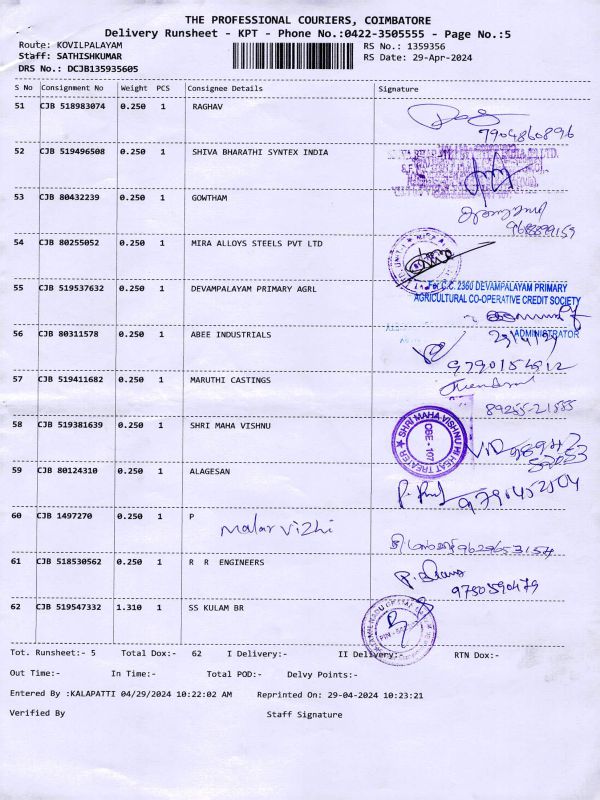 THE PROFESSIONAL COURIERS, COIMBATORE
Delivery Runsheet - KPT - Phone No.:0422-3505555 - Page No.:5
Route: KOVILPALAYAM RS No.: 1359356
Staff: SATHISHKUMAR RS Date: 29-Apr-2024
DRS No.: DCJB135935605
S No Consignment No Weight PCS Consignee Details Signature
51 CJB 518983074 0.250 1 RAGHAV
7904860896
52 CJB 519496508 0.250 1 SHIVA BHARATHI SYNTEX INDIA
53 CJB 80432239 0.250 1 GOWTHAM
54 CJB 80255052 0.250 1 MIRA ALLOYS STEELS PVT LTD
55 CJB 519537632 0.250 1 DEVAMPALAYAM PRIMARY AGRL
For C.C. 2360 DEVAMPALAYAM PRIMARY
AGRICULTURAL CO-OPERATIVE CREDIT SOCIETY
ADMINISTRATOR
56 CJB 80311578 0.250 1 ABEE INDUSTRIALS
29/4/24
57 CJB 519411682 0.250 1 MARUTHI CASTINGS
89255-21555
58 CJB 519381639 0.250 1 SHRI MAHA VISHNU
SHRI MAHA VISHNU HEAT TREATER
CBE - 107
59 CJB 80124310 0.250 1 ALAGESAN
60 CJB 1497270 0.250 1 P
Malar Vizhi
9629653154
61 CJB 518530562 0.250 1 R R ENGINEERS
9750590479
62 CJB 519547332 1.310 1 SS KULAM BR
Tot. Runsheet:- 5 Total Dox:- 62 I Delivery:- II Delivery:- RTN Dox:-
Out Time:- In Time:- Total POD:- Delvy Points:-
Entered By :KALAPATTI 04/29/2024 10:22:02 AM Reprinted On: 29-04-2024 10:23:21
Verified By Staff Signature